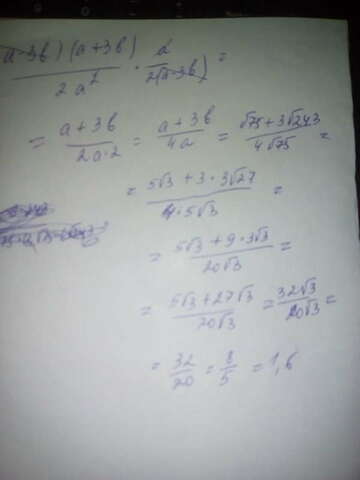 (a-3b)(a+3b)/2a² · a/2(a-3b) =
= a+3b/2a·2 = a+3b/4a = √75+3√243/4√75 =
= 5√3+3·3√27/4·5√3 =
= 5√3+9·3√3/20√3 =
= 5√3+27√3/20√3 = 32√3/20√3 =
= 32/20 = 8/5 = 1,6